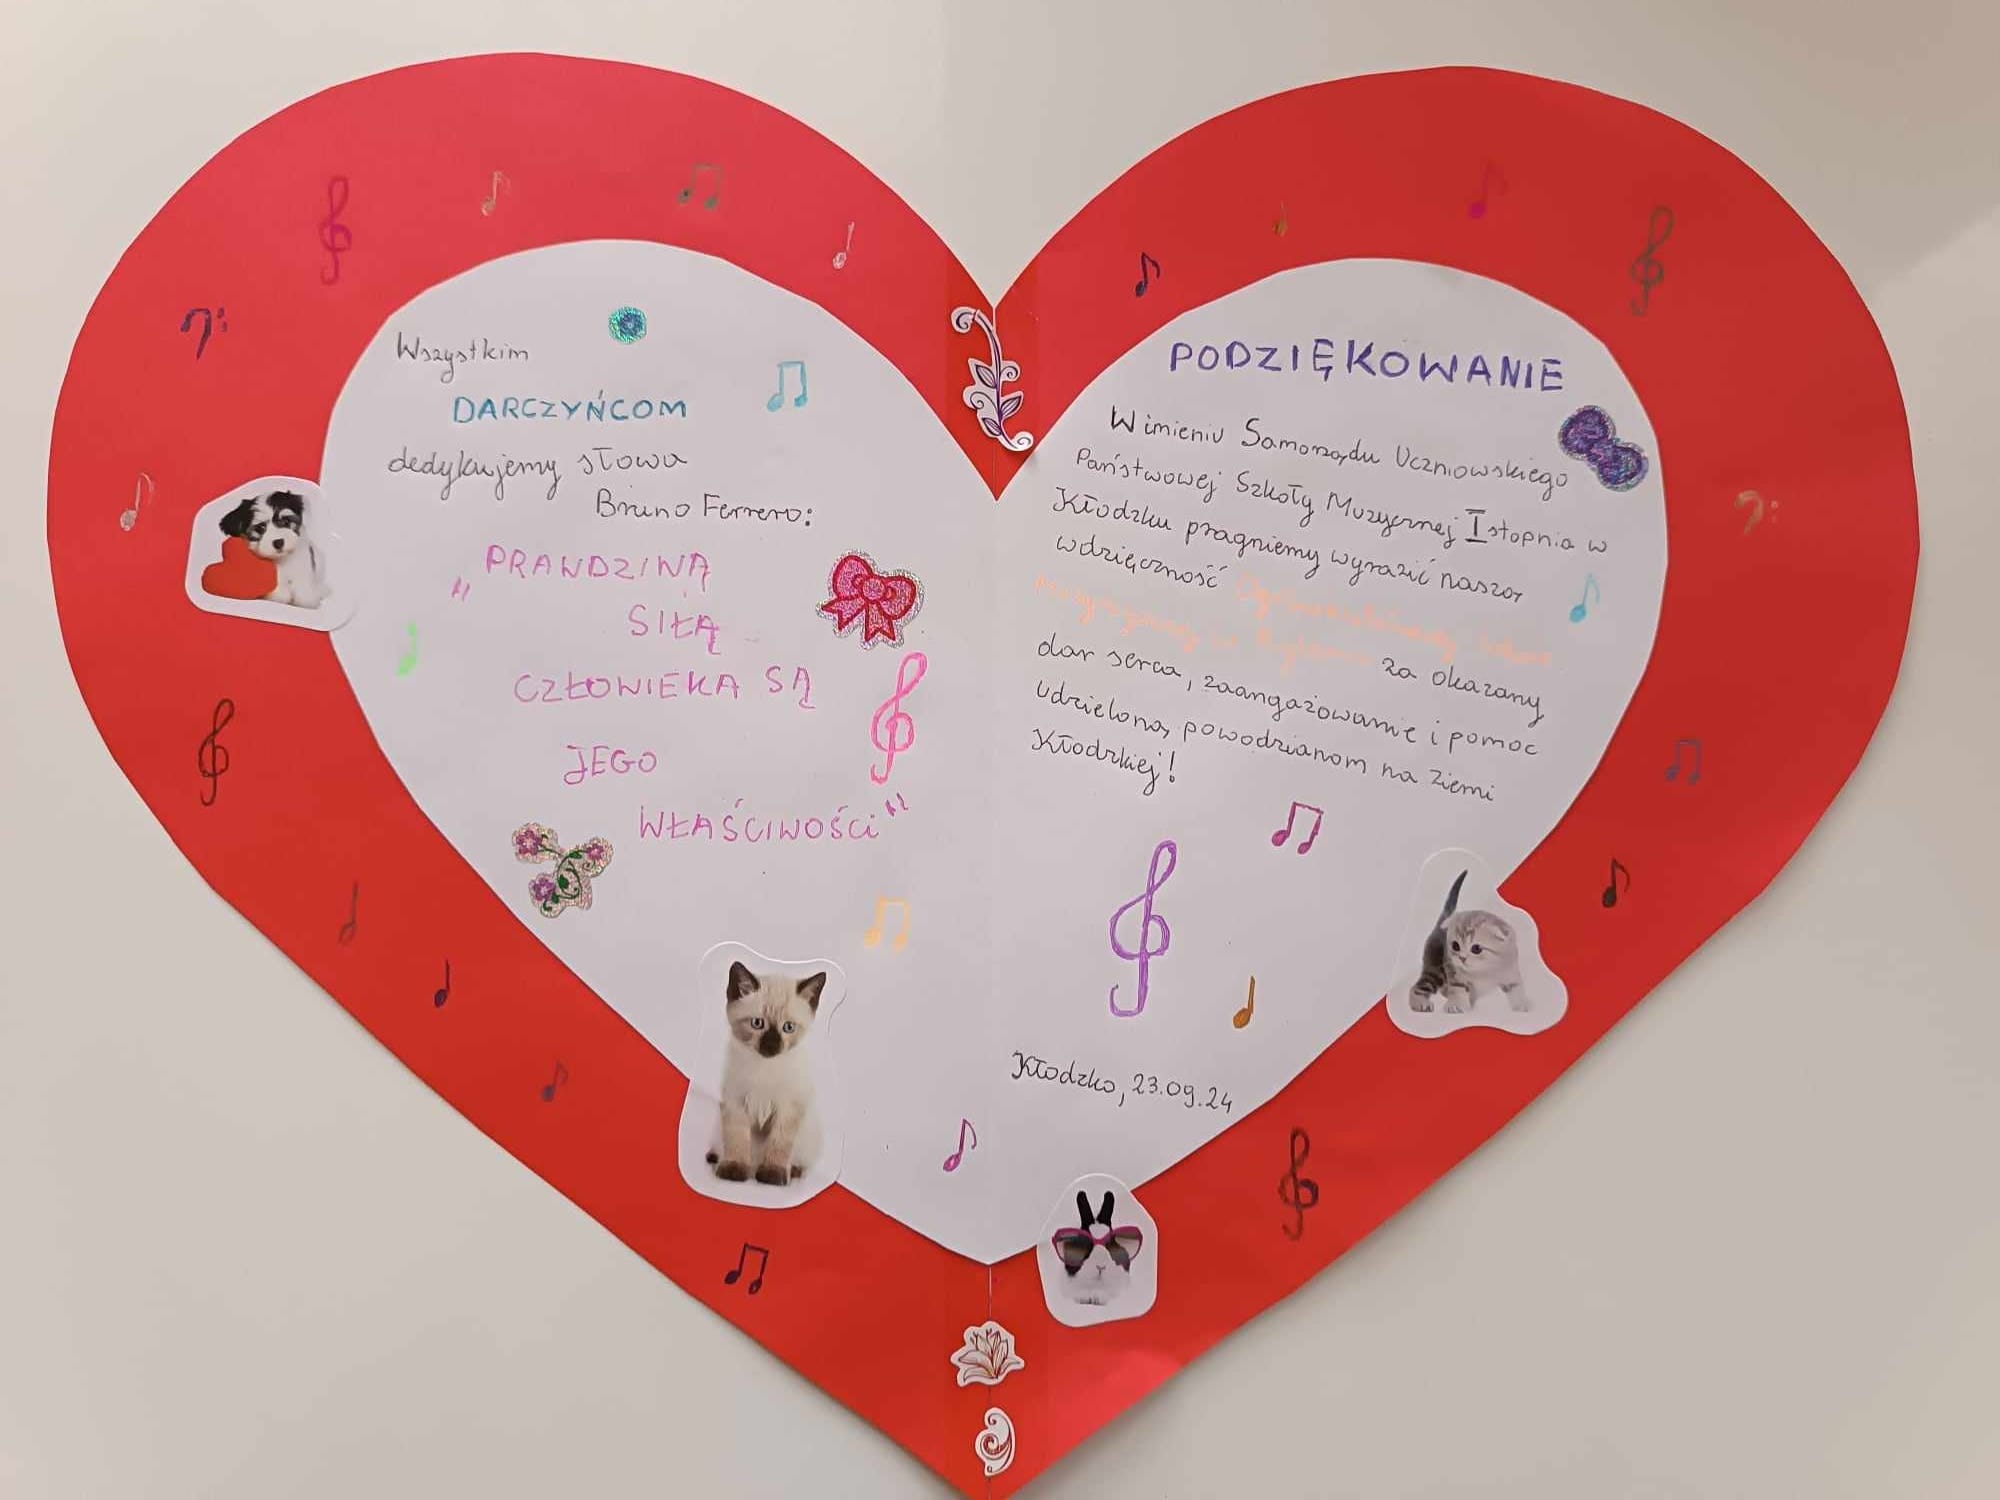 Wszystkim
DARCZYŃCOM
dedykujemy słowa
Bruno Ferrero:
"PRAWDZIWĄ
SIŁĄ
CZŁOWIEKA SĄ
JEGO
WŁAŚCIWOŚCI"
PODZIĘKOWANIE
W imieniu Samorządu Uczniowskiego
Państwowej Szkoły Muzycznej I stopnia w
Kłodzku pragniemy wyrazić naszą
wdzięczność
za okazany
dar serca, zaangażowanie i pomoc
udzieloną powodzianom na Ziemi
Kłodzkiej!
Kłodzko, 23.09.24